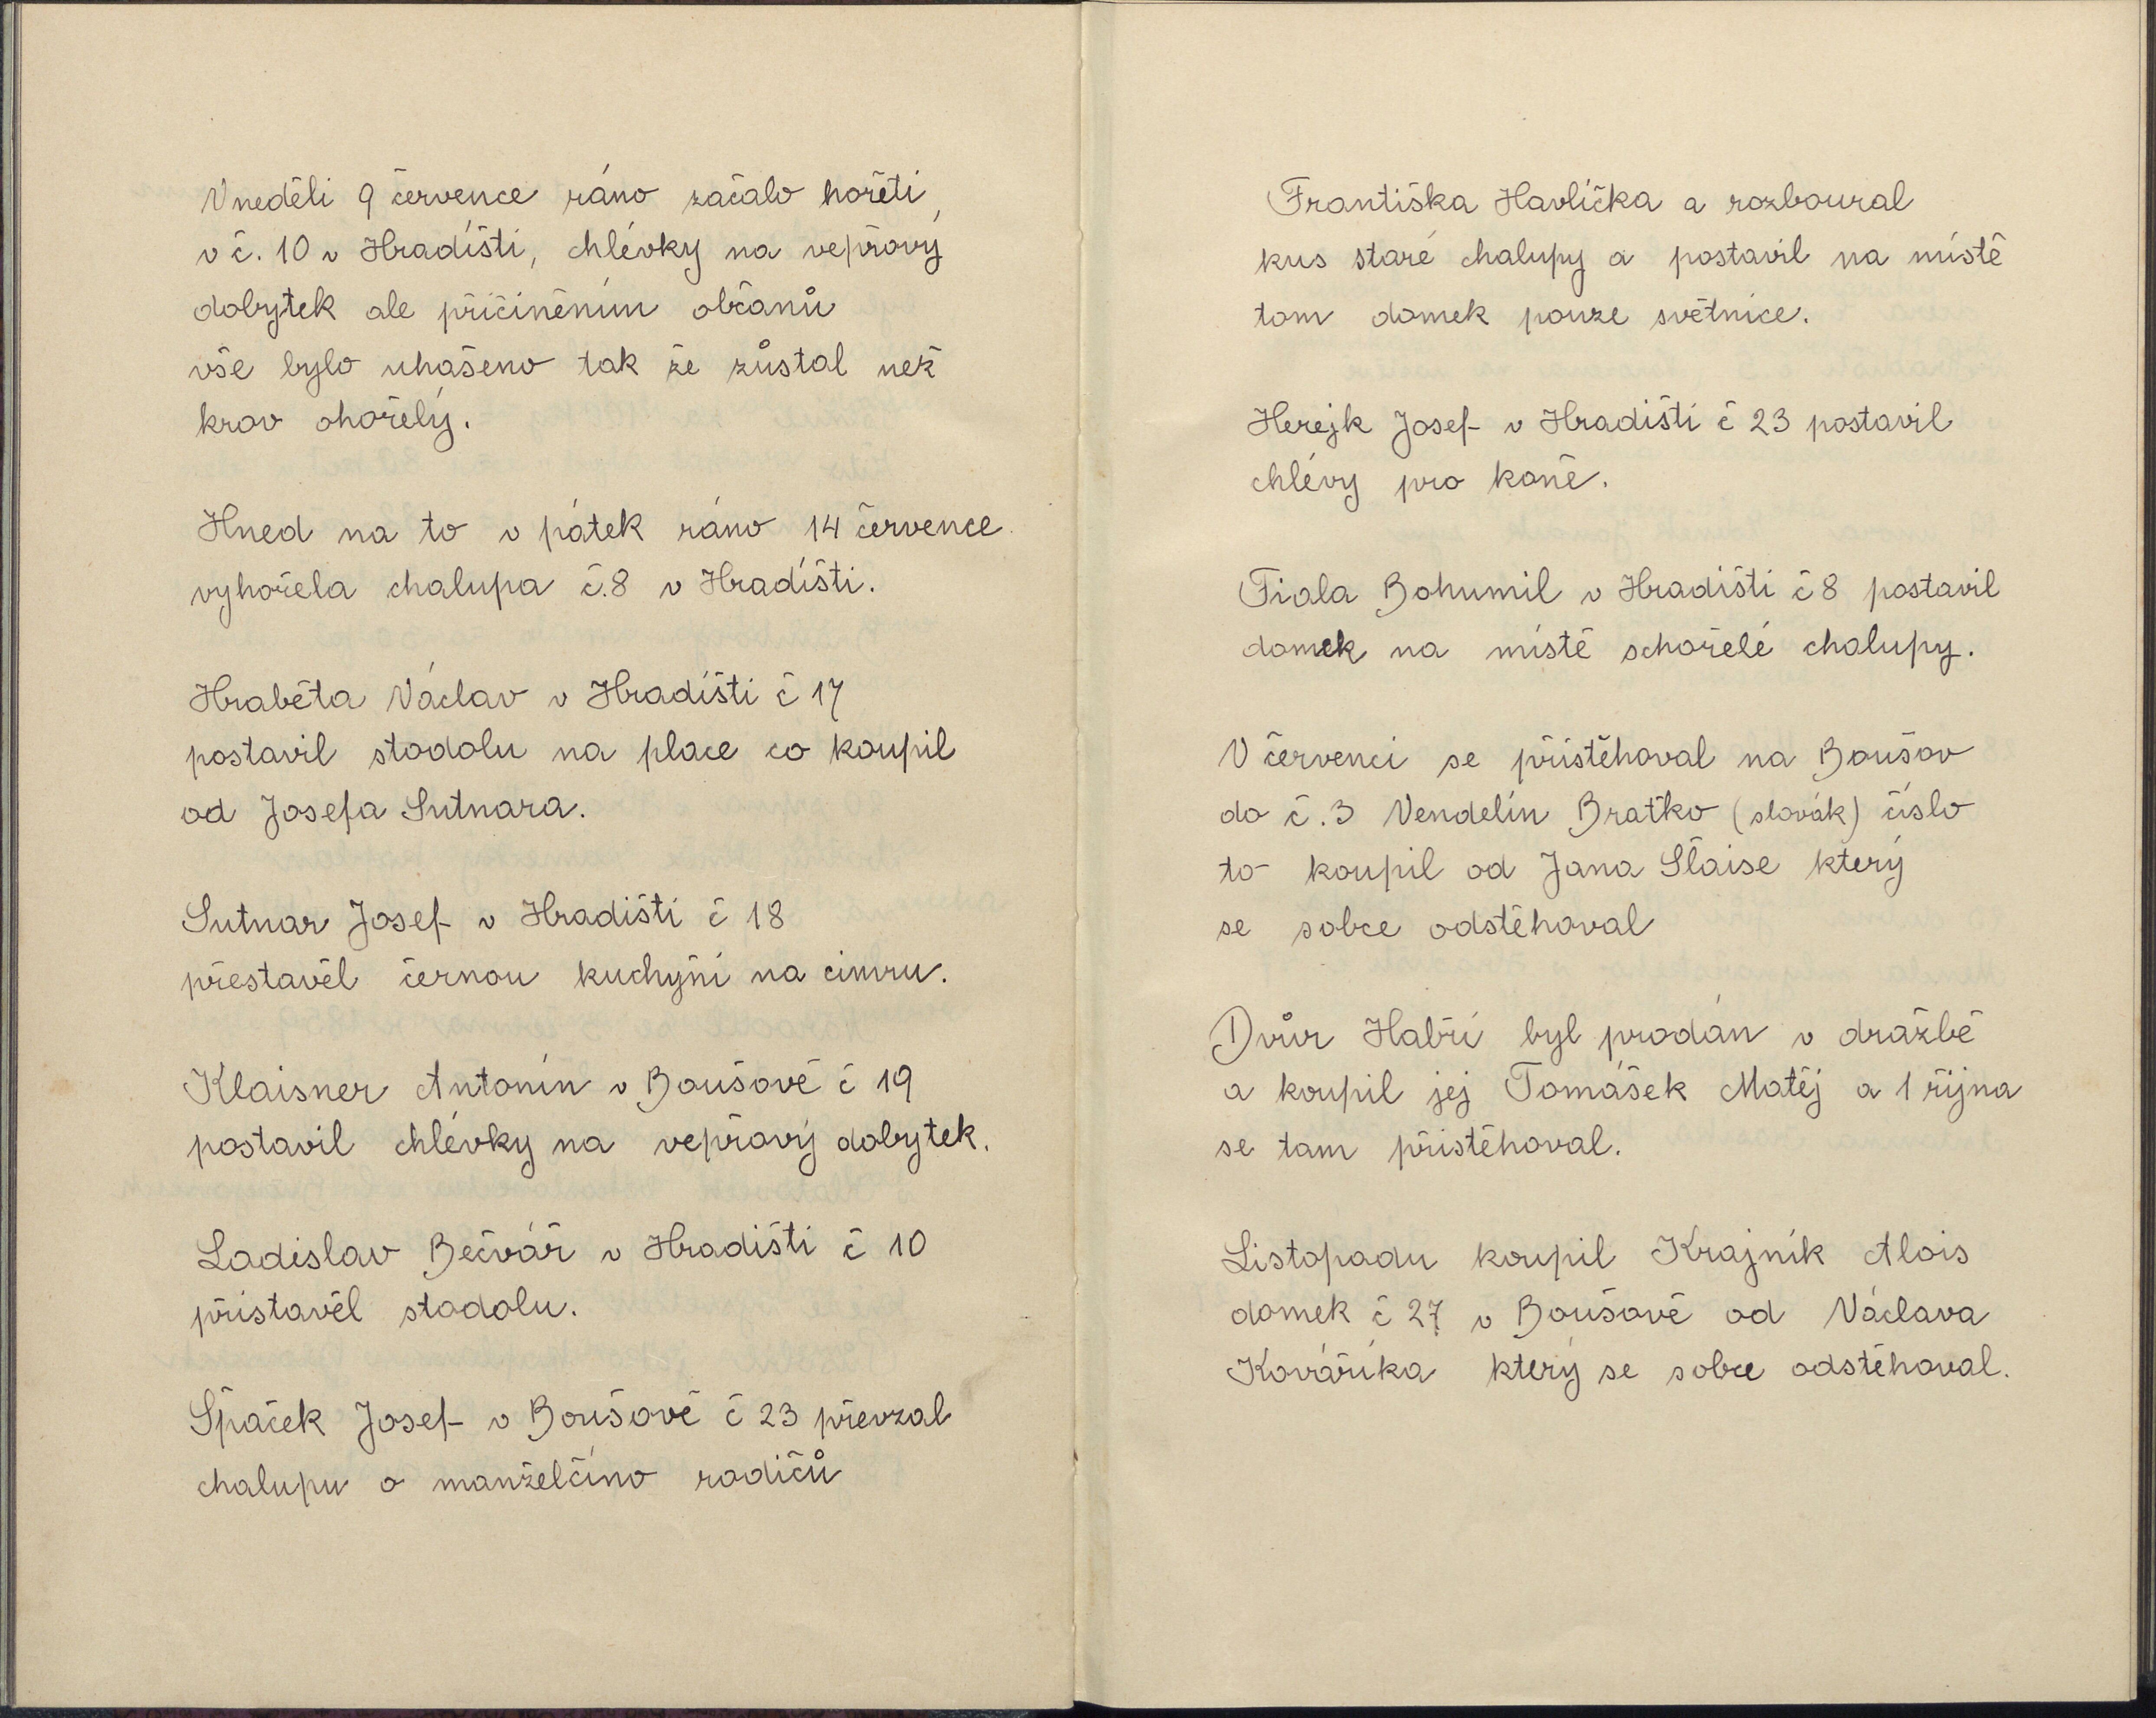 V neděli 9 července ráno začalo hořeti
v č. 10 v Hradíšti, chlévky na vepřový
dobytek ale přičiněním občanů
vše bylo uhašeno tak že zůstal než
krov ohořelý.
Hned na to v pátek ráno 14 července
vyhořela chalupa č. 8 v Hradíšti.
Hraběta Václav v Hradíšti č 17
postavil stodolu na place co koupil
od Josefa Sutnara.
Sutnar Josef v Hradišti č 18
přestavěl černou kuchyňi na cimru.
Klaisner Antonín v Boušově č 19
postavil chlévky na vepřový dobytek.
Ladislav Bečvář v Hradišti č 10
přistavěl stodolu.
Špaček Josef v Boušově č 23 převzal
chalupu o manželčíno rodičů
Františka Havlíčka a rozboural
kus staré chalupy a postavil na místě
tom domek pouze světnice.
Herejk Josef v Hradišti č 23 postavil
chlévy pro koně.
Fiala Bohumil v Hradišti č 8 postavil
domek na místě schořelé chalupy.
V červenci se přistěhoval na Boušov
do č. 3 Vendelín Braťko (slovák) číslo
to koupil od Jana Šlaise který
se sobce odstěhoval
Dvůr Habří byl prodán v dražbě
a koupil jej Tomášek Matěj a 1 října
se tam přistěhoval.
Listopadu koupil Krajník Alois
domek č 27 v Boušově od Václava
Kovaříka který se sobce odstěhoval.